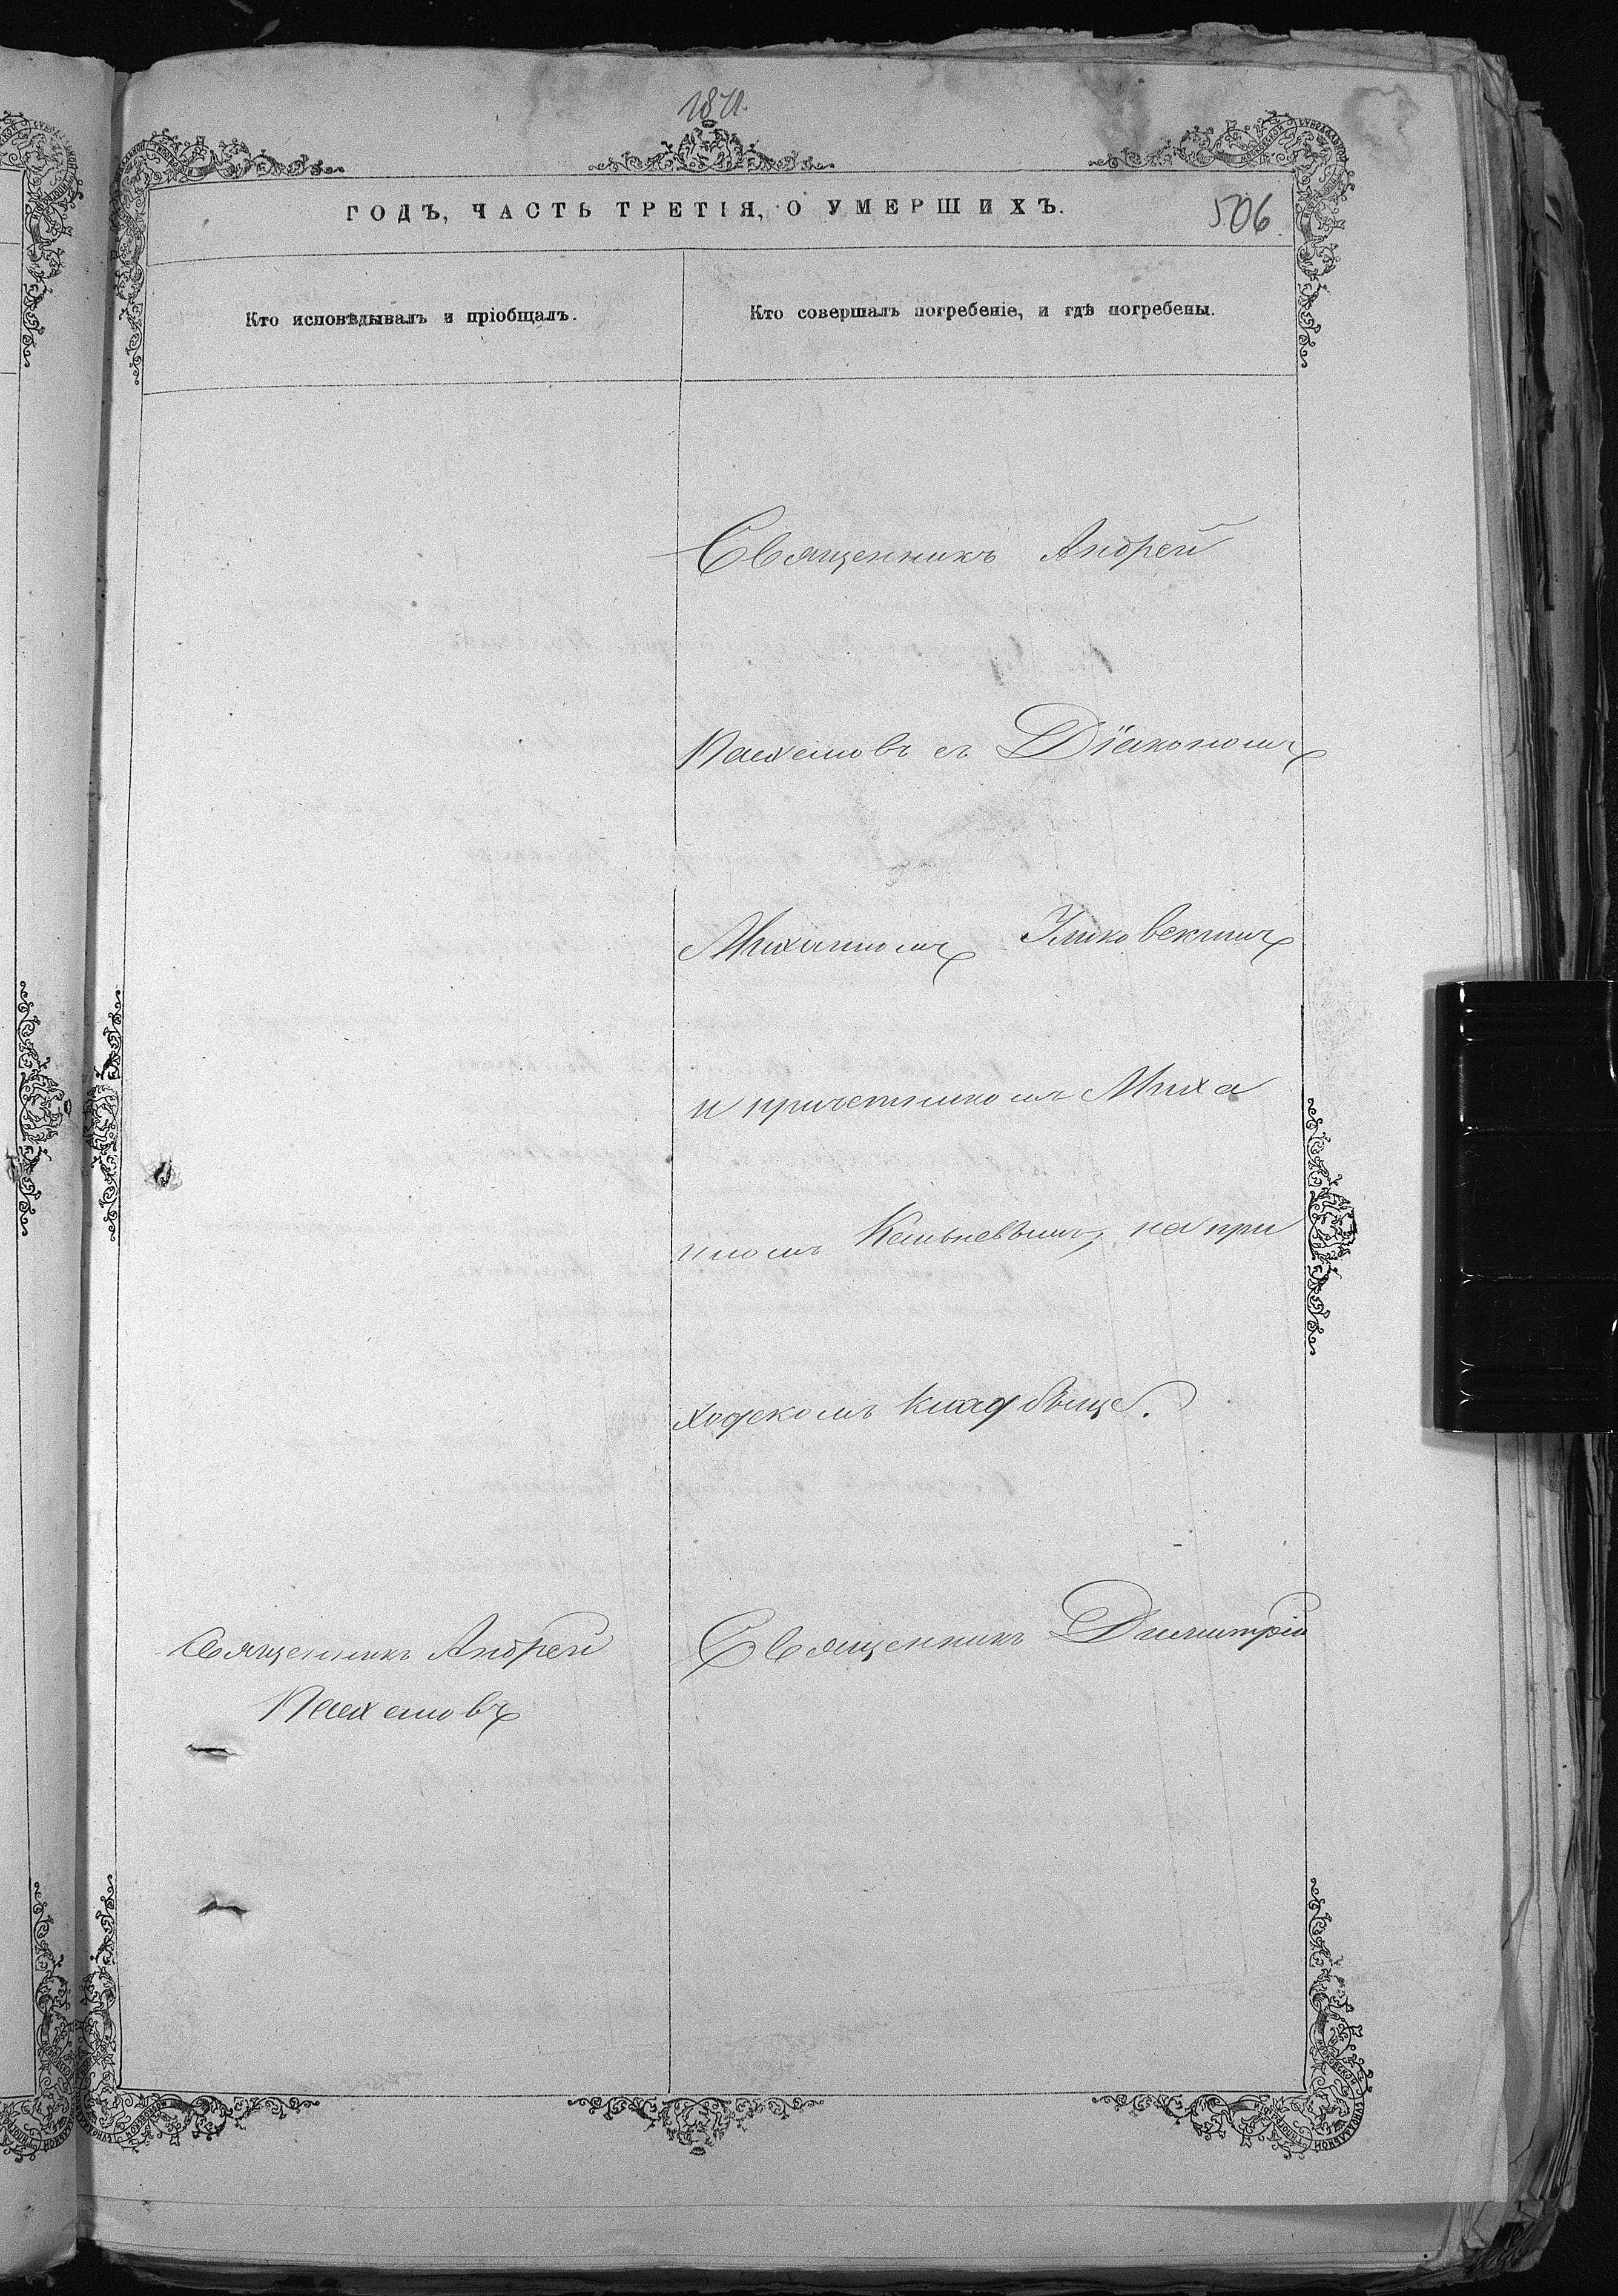 1871.
ГОДЪ, ЧАСТЬ ТРЕТІЯ, О УМЕРШИХЪ.
506.
Кто исповѣдывалъ и пріобщалъ.
Кто совершалъ погребеніе, и гдѣ погребены.
Священникъ Андрей
съ Діакономъ
Михаиломъ
и причетникомъ Миха
иломъ на при
ходскомъ кладбищѣ.
Священникъ Андрей
Священникъ Димитрій